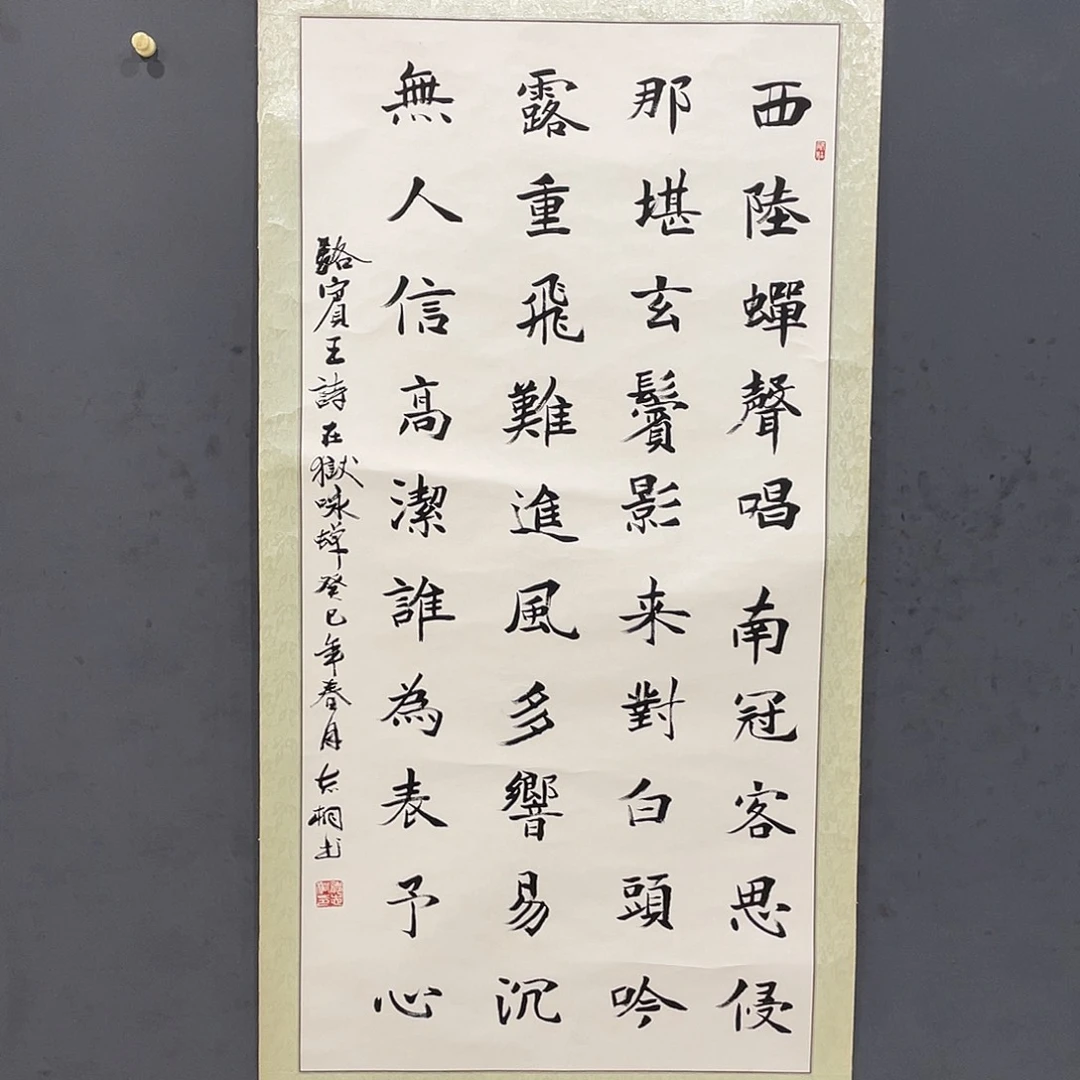 西陸蟬聲唱南冠客思侵
那堪玄鬢影来對白頭吟
露重飛難進風多響易沉
無人信高潔誰為表予心
駱賓王詩在獄咏蟬癸巳年春月志桐书